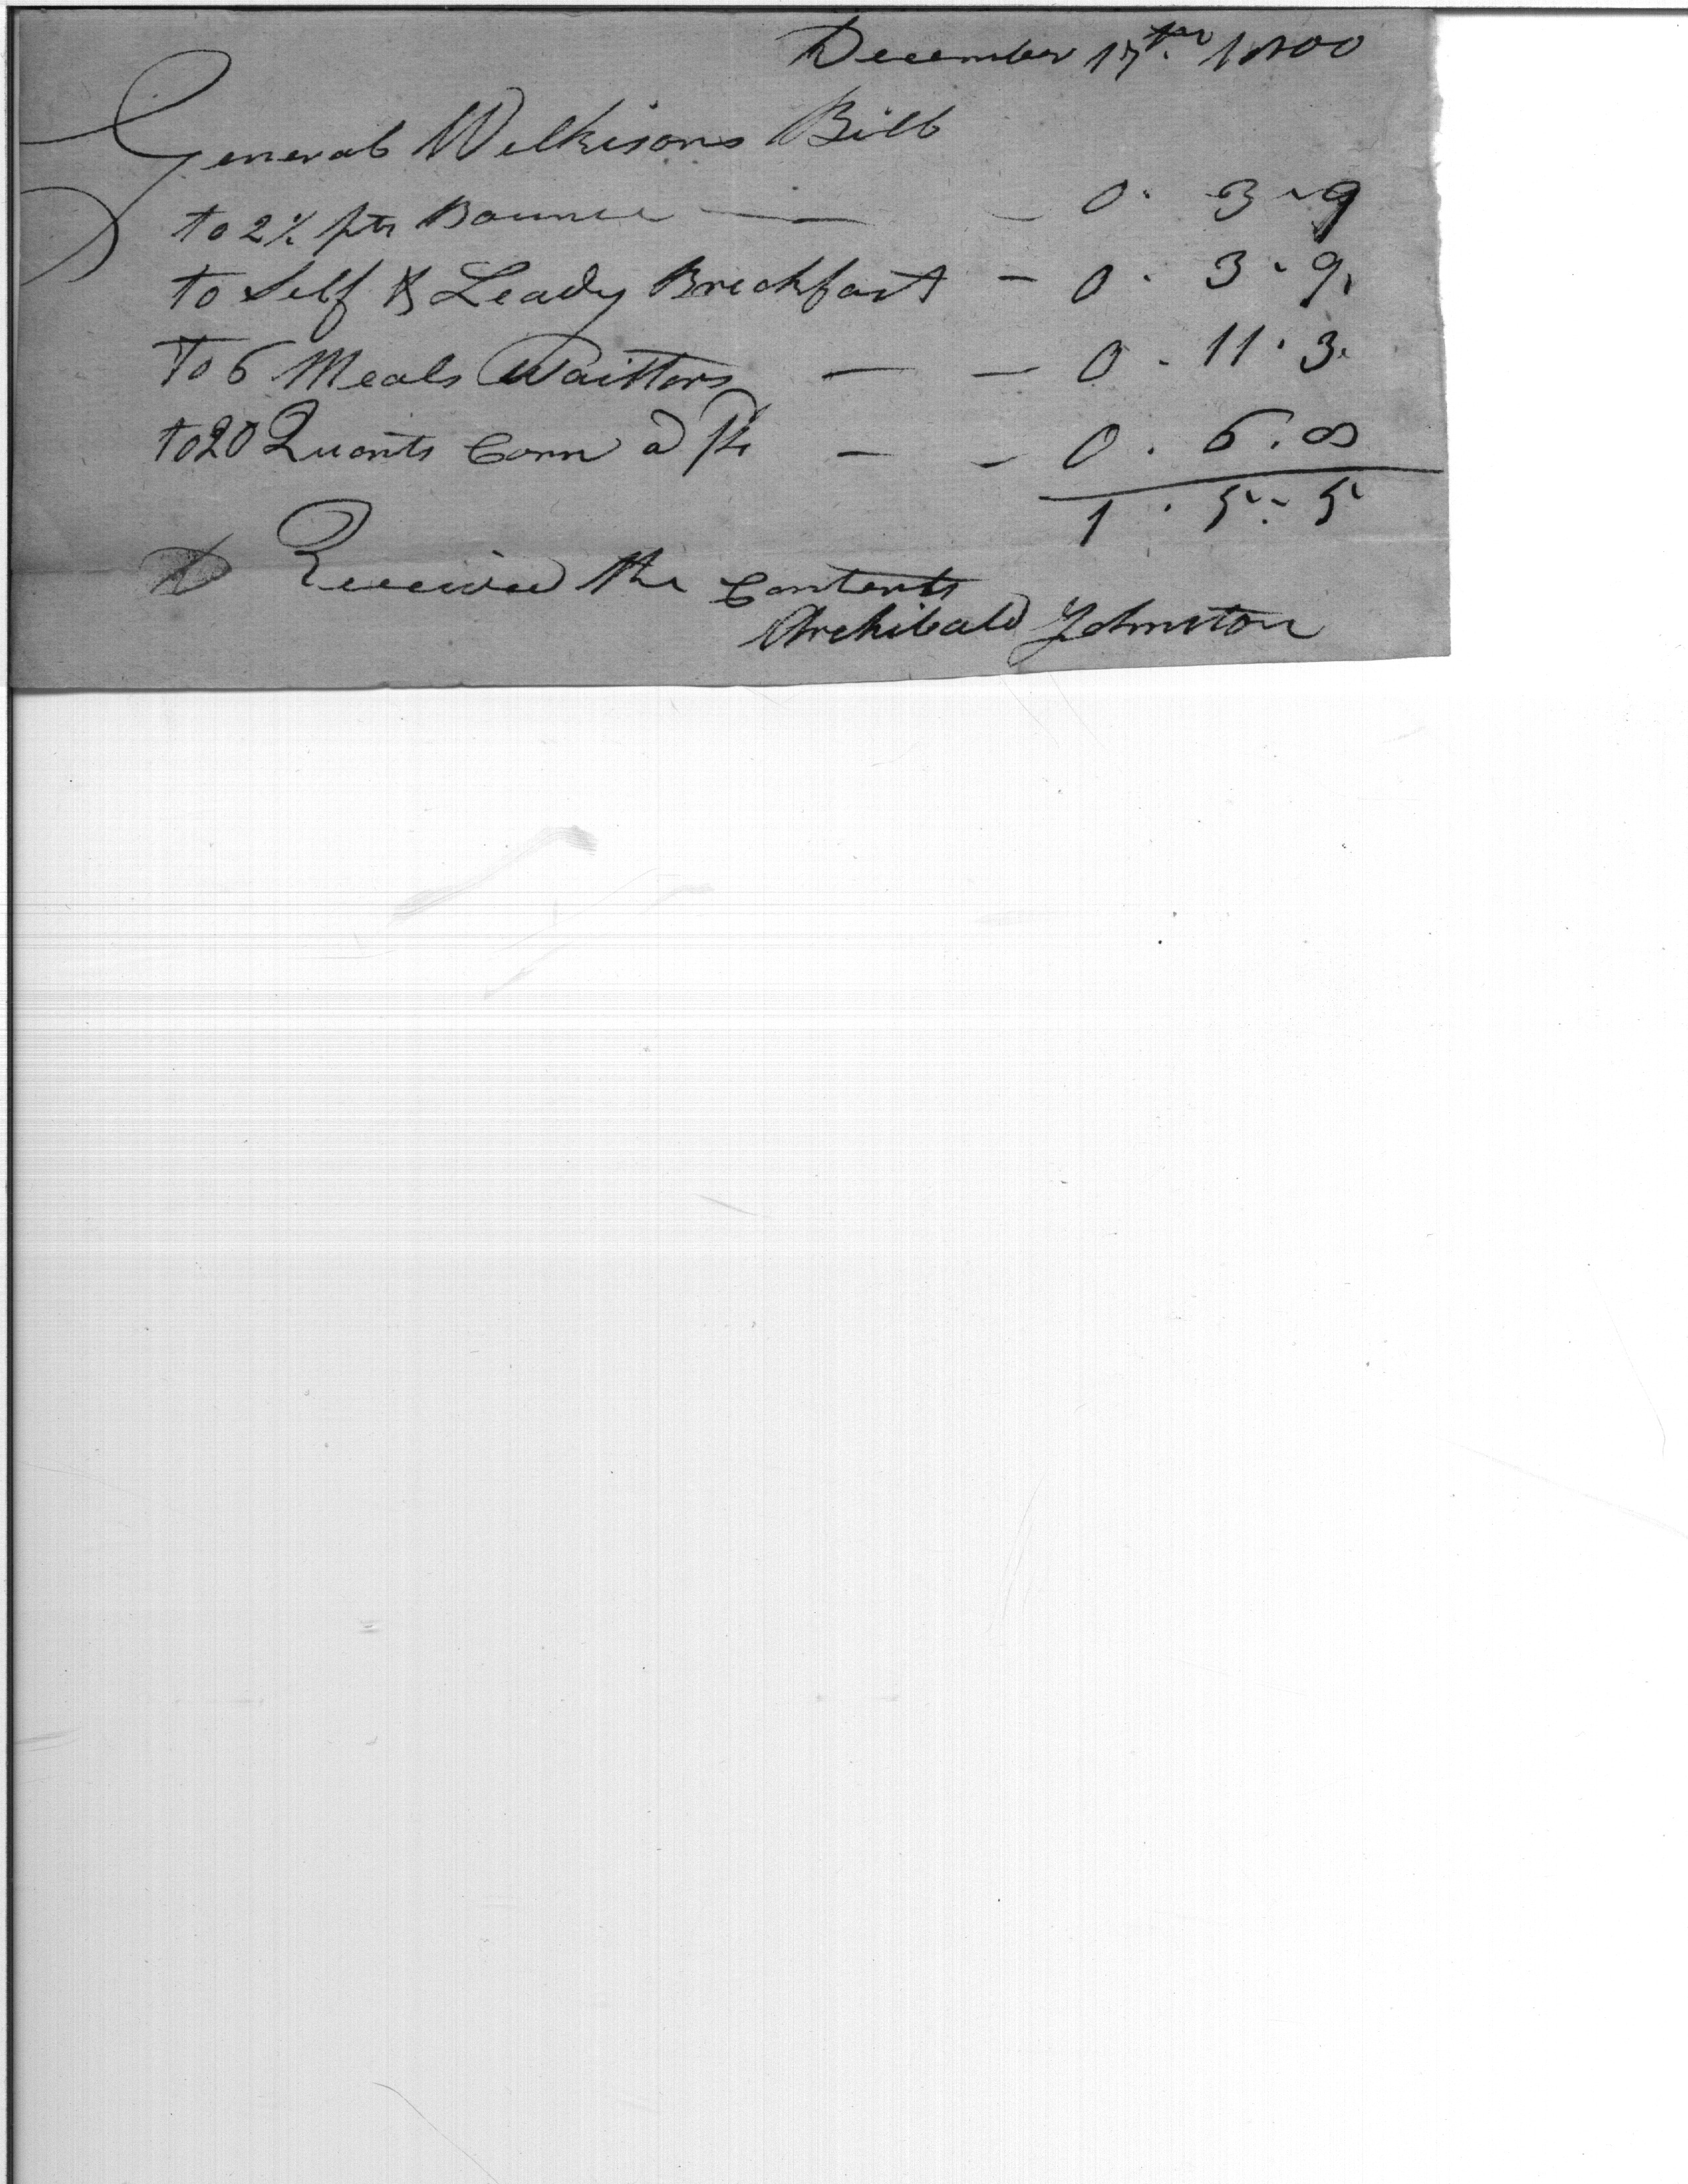 December 17th 1800
General Wilkisons Bill
to 2½ pts Bounce — — 0 . 3 . 9
to Self & Leady Breckfast — 0 . 3 . 9
To 6 Meals Waittors — — 0 . 11 . 3
to 20 Quarts Corn a — — 0 . 6 . 8
1 . 5 . 5
Received the Contents
Archibald Johnston